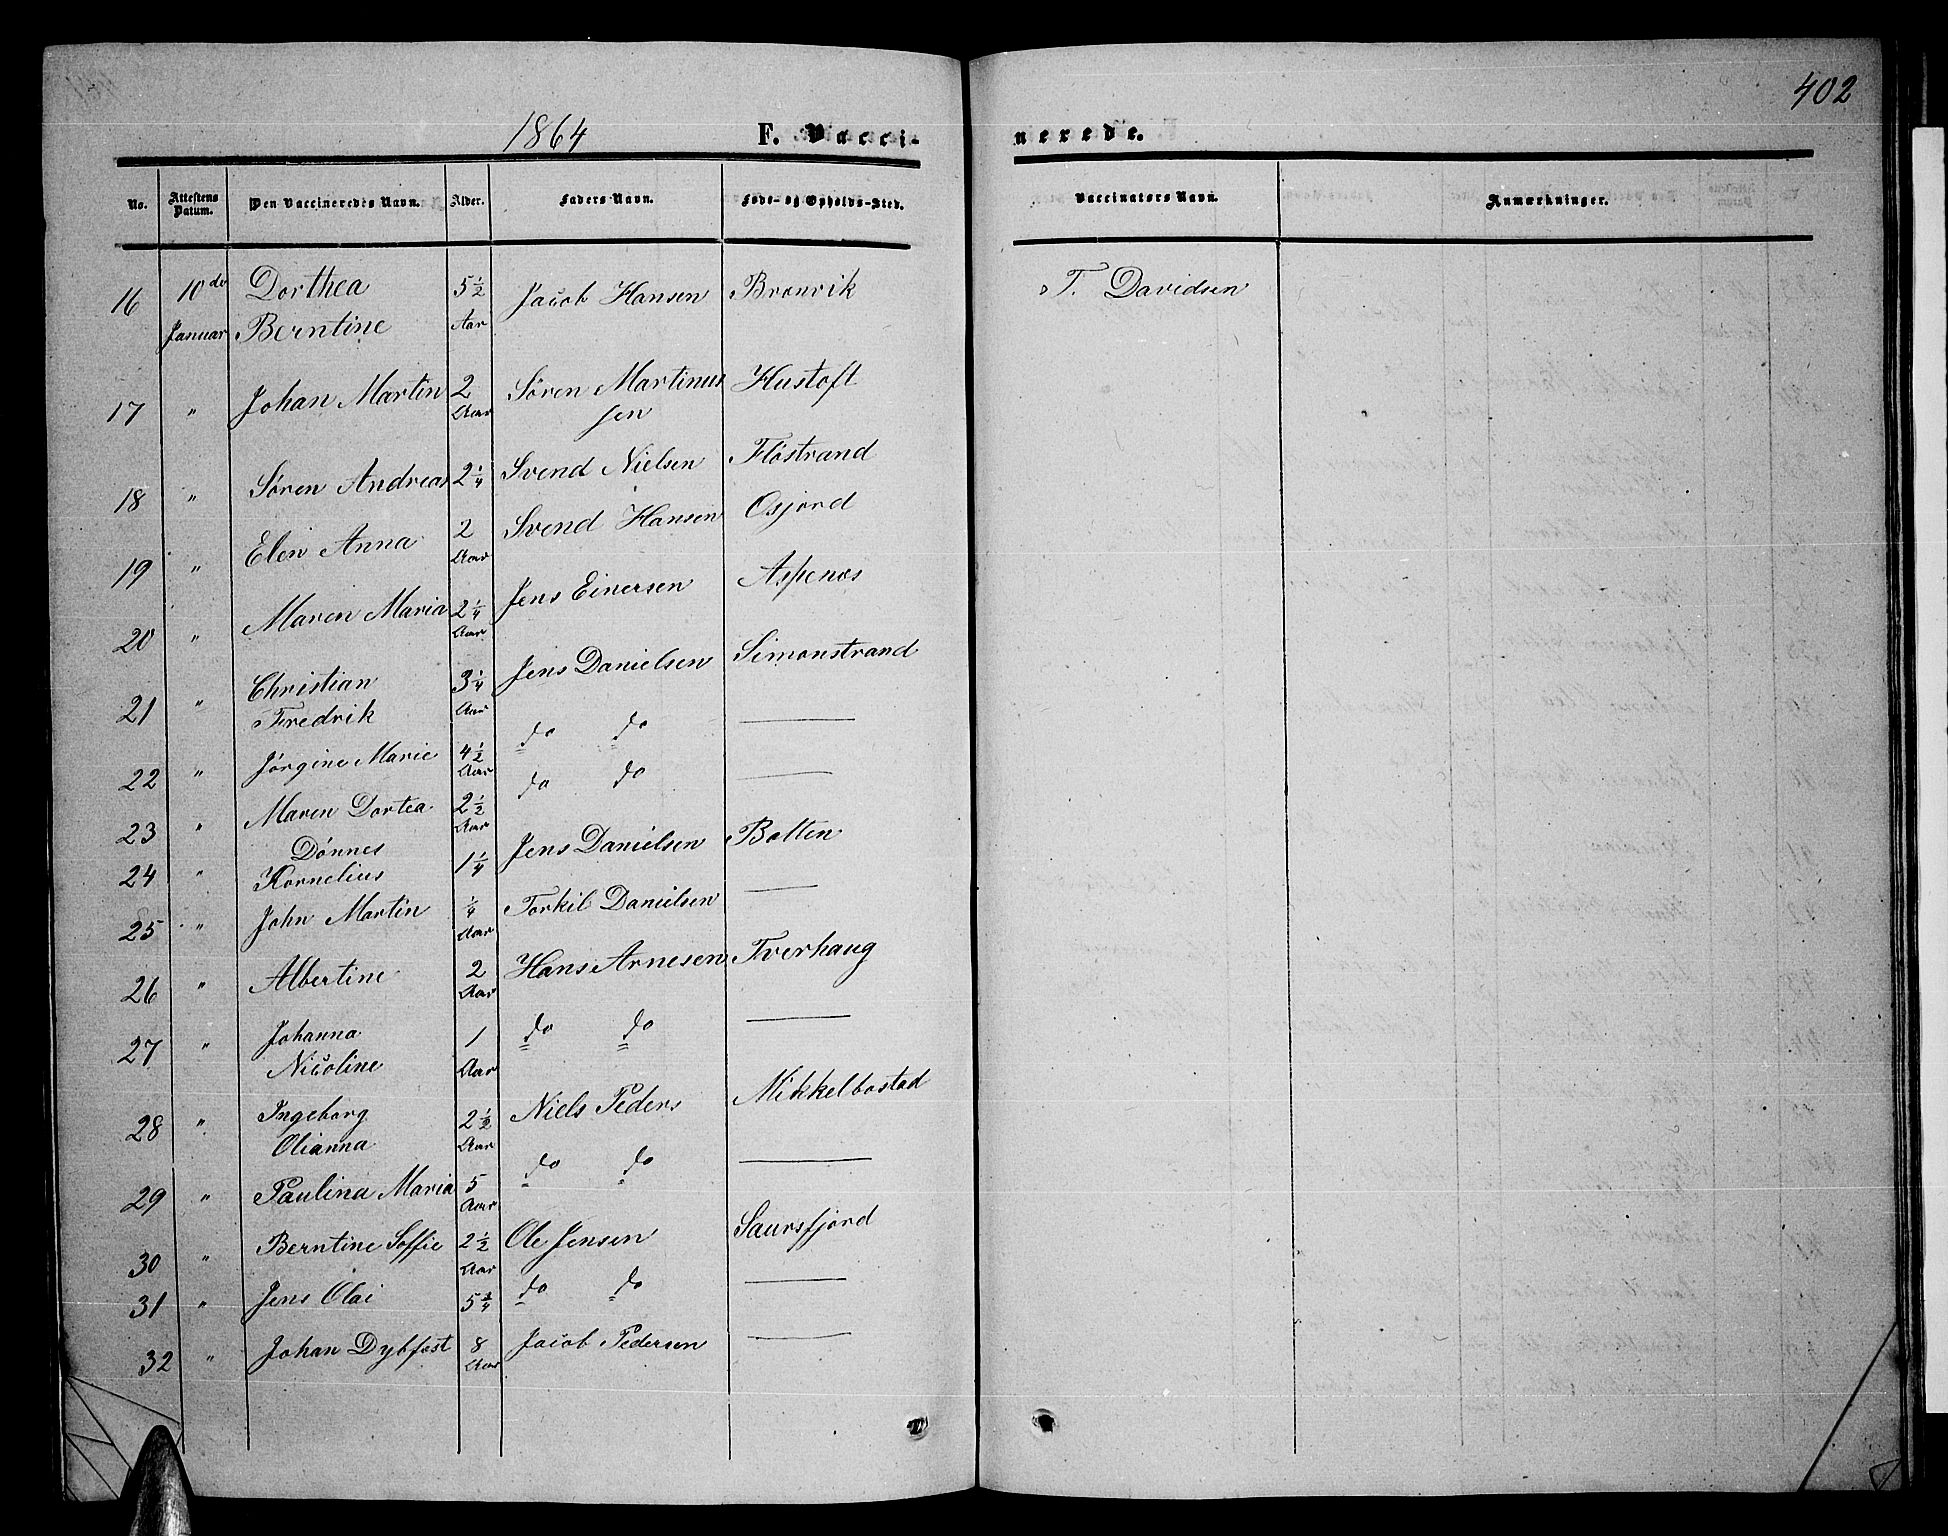 402
1864 F. Vacci- nerede.
No. Attestens Datum. Den Vaccineredes Navn. Alder. Faders Navn. Føde- og Opholds-Sted. Vaccinators Navn. Anmærkninger.
16 10de Januar Dorthea Berntine 5 1/2 Aar Jacob Hansen Bronvik T. Davidsen
17 " Johan Martin 2 Aar Sören Martinus sen Hustoft
18 " Sören Andreas 2 1/4 Svend Nielsen Flöstrand
19 " Elen Anna 2 Aar Svend Hansen Osjord
20 " Maren Maria 2 1/4 Aar Jens Einersen Aspenæs
21 " Christian Fredrik 3 1/4 Aar Jens Danielsen Simonstrand
22 " Jørgine Marie 4 1/2 Aar do do —
23 " Maren Dortea 2 1/2 Aar do do —
24 " Dönnes Kornelius 1 1/4 Jens Danielsen Botten
25 " John Martin 1/4 Aar Torkil Danielsen —
26 " Albertine 2 Aar Hans Arnesen Tverhaug
27 " Johanna Nicoline 1 Aar do do —
28 " Ingeborg Olianna 2 1/2 Aar Niels Peders Mikkelbostad
29 " Paulina Maria 5 Aar do do —
30 " Berntine Soffie 2 1/2 Aar Ole Jensen Saursfjord
31 " Jens Olai 5 3/4 do do —
32 " Johan Dybfast 8 Aar Jacob Pedersen —